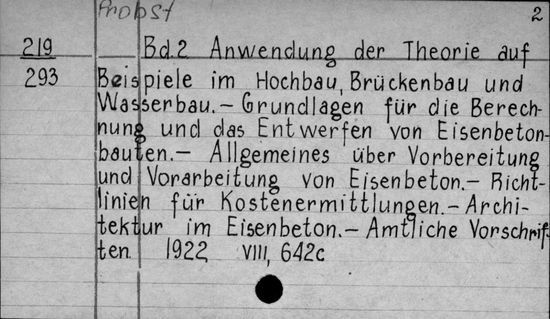 Probst 2
219 — Bd.2 Anwendung der Theorie auf
293 Beispiele im Hochbau, Brückenbau und
Wasserbau.— Grundlagen für die Berech-
nung und das Entwerfen von Eisenbeton-
bauten.— Allgemeines über Vorbereitung
und Vorarbeitung von Eisenbeton.— Richt-
linien für Kostenermittlungen.— Archi-
tektur im Eisenbeton.— Amtliche Vorschrif-
ten 1922, VIII, 642c